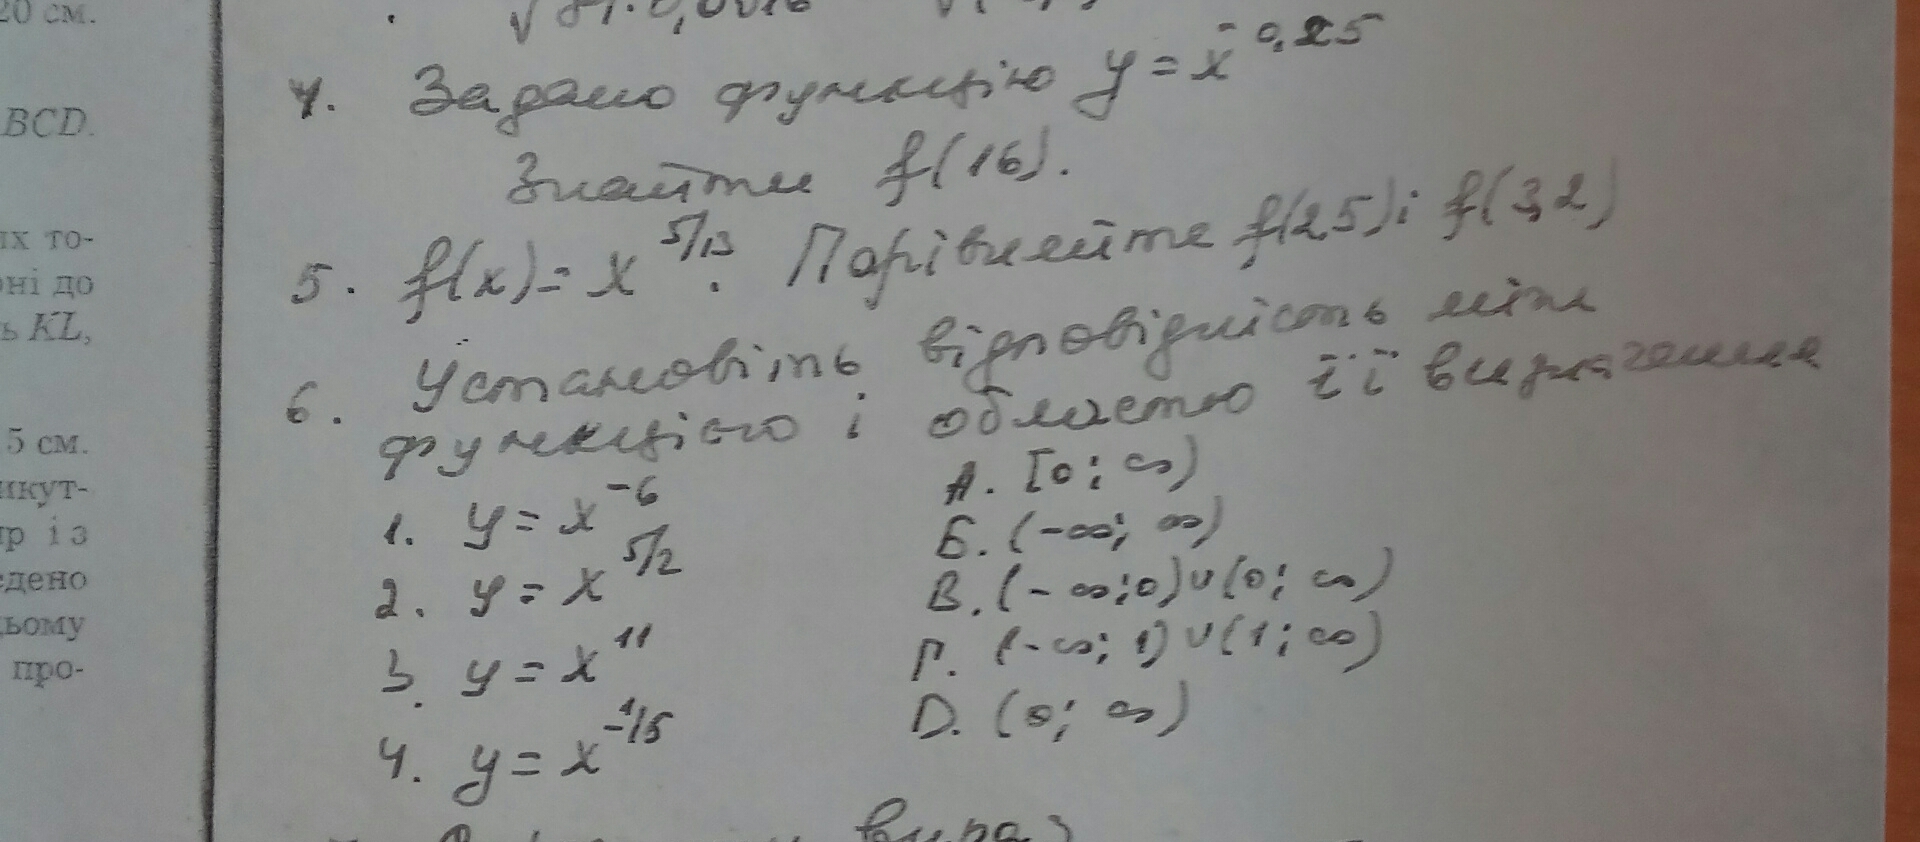 20 см.
BCD.
их то-
оні до
ь KL,
5 см.
икут-
ір із
едено
ьому
про-
4. Задано функцію y = x^-0,25
Знайти f(16).
5. f(x) = x^5/13. Порівняйте f(2,5) і f(3,2)
6. Установіть відповідність між
функцією і областю її визначення
1. y = x^-6 А. [0; ∞)
2. y = x^5/2 Б. (-∞; ∞)
3. y = x^11 В. (-∞; 0)∪(0; ∞)
4. y = x^-1/5 Г. (-∞; 1)∪(1; ∞)
D. (0; ∞)